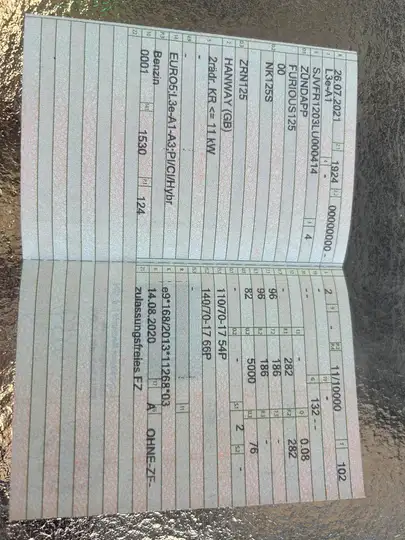 26.07.2021 1924 00000000 -
L3e-A1 -
SJVFR1203LU000414
ZÜNDAPP 4
FURIOUS125
00
NK125S
ZRN125
HANWAY (GB)
2rädr. KR <= 11 kW
-
-
EURO5;L3e-A1-A3;PI/CI/Hybr
Benzin
0001 1530 124
2 11/10000 102
- - 132 - -
- 0.08
282 282
96 186 -
96 186 -
82 5000 76
- - 2 -
110/70-17 54P
140/70-17 66P
-
e9*168/2013*11268*03
14.08.2020 A OHNE-ZF-
zulassungsfreies FZ